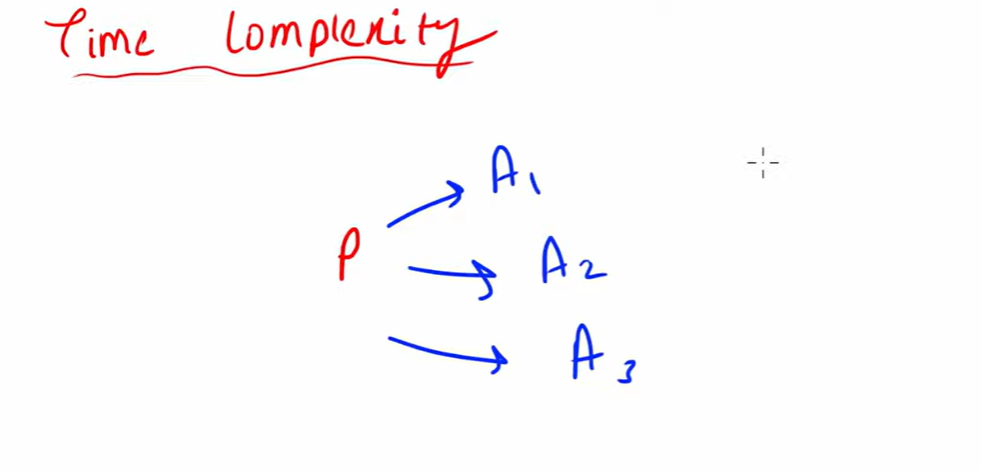 Time Complexity
A1
P
A2
A3